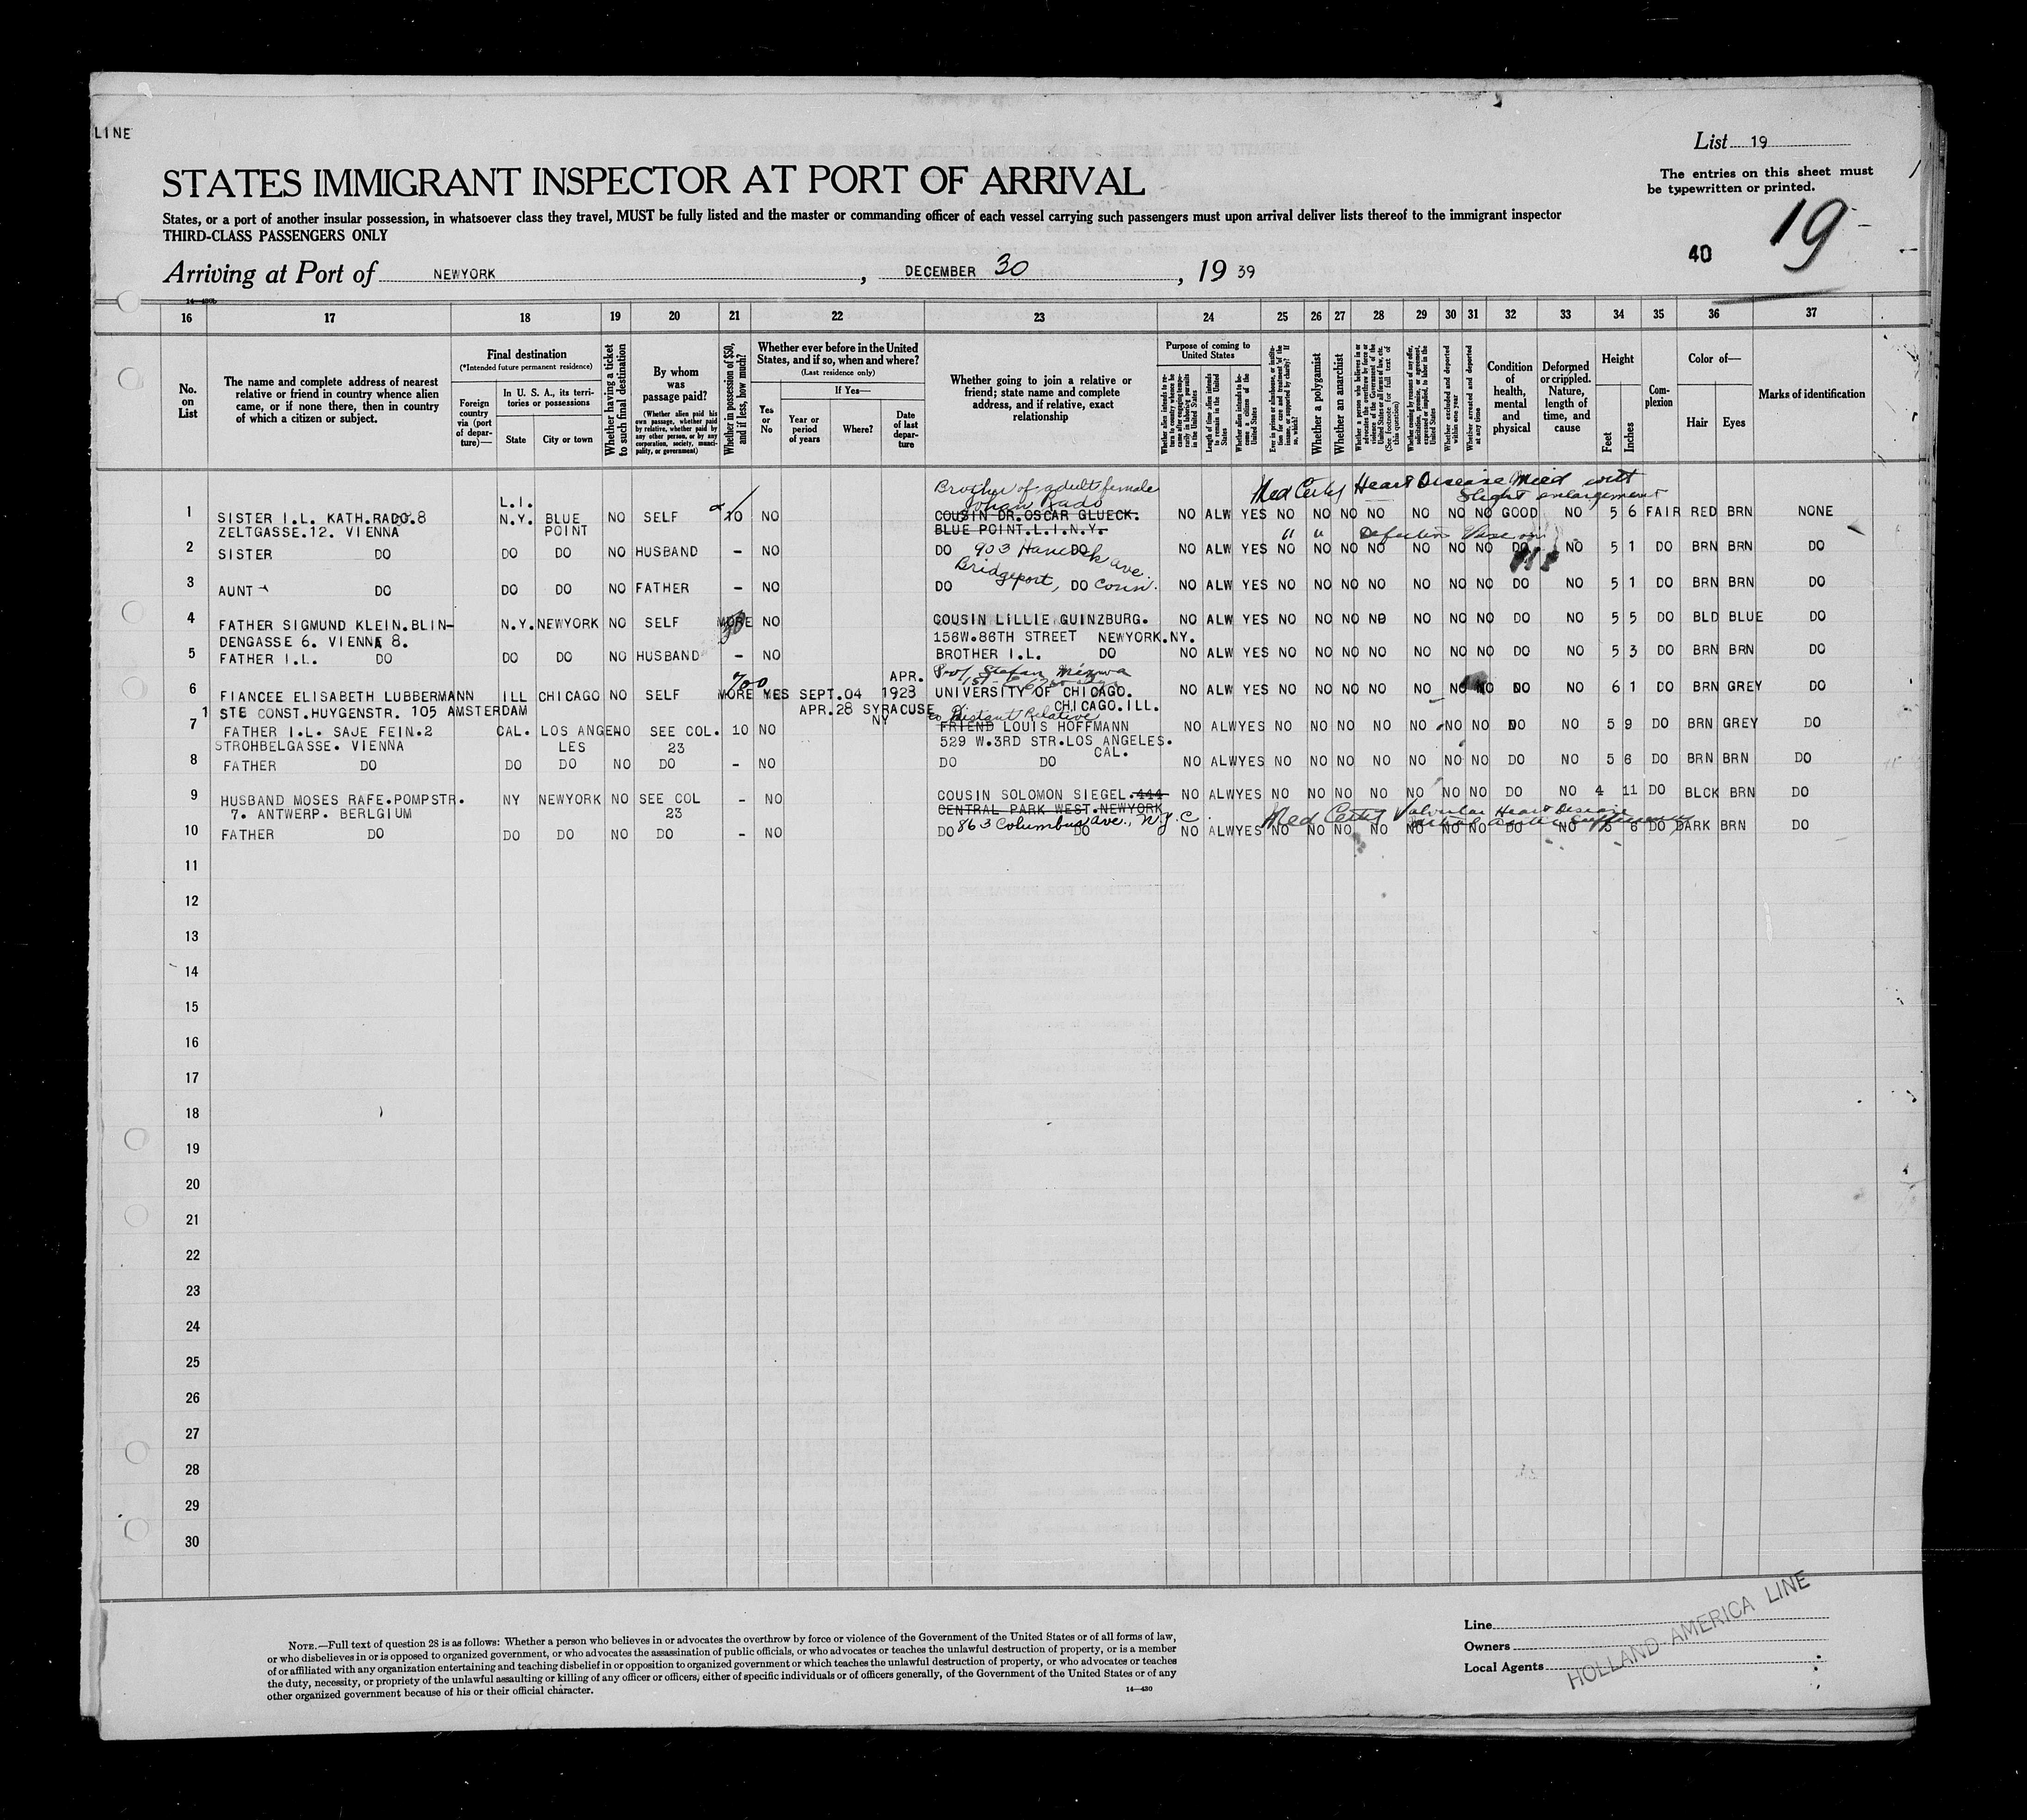 LINE
List 19
STATES IMMIGRANT INSPECTOR AT PORT OF ARRIVAL
The entries on this sheet must
be typewritten or printed.
States, or a port of another insular possession, in whatsoever class they travel, MUST be fully listed and the master or commanding officer of each vessel carrying such passengers must upon arrival deliver lists thereof to the immigrant inspector
THIRD-CLASS PASSENGERS ONLY
40 19
Arriving at Port of NEWYORK, DECEMBER 30, 19 39
16 17 18 19 20 21 22 23 24 25 26 27 28 29 30 31 32 33 34 35 36 37
No. on List
The name and complete address of nearest relative or friend in country whence alien came, or if none there, then in country of which a citizen or subject.
Final destination
(*Intended future permanent residence)
Foreign country via (port of departure)—
In U. S. A., its territories or possessions
State
City or town
Whether having a ticket to such final destination
By whom was passage paid?
(Whether alien paid his own passage, whether paid by relative, whether paid by any other person, or by any corporation, society, municipality, or government)
Whether in possession of $50, and if less, how much?
Whether ever before in the United States, and if so, when and where?
(Last residence only)
Yes or No
If Yes—
Year or period of years
Where?
Date of last departure
Whether going to join a relative or friend; state name and complete address, and if relative, exact relationship
Purpose of coming to United States
Whether alien intends to return to country whence he came after engaging temporarily in laboring pursuits in the United States
Length of time alien intends to remain in the United States
Whether alien intends to become a citizen of the United States
Ever in prison or almshouse, or institution for care and treatment of the insane, or supported by charity? If so, which?
Whether a polygamist
Whether an anarchist
Whether a person who believes in or advocates the overthrow by force or violence of the Government of the United States or all forms of law, etc. (See footnote for full text of this question)
Whether coming by reasons of any offer, solicitation, promise, or agreement, expressed or implied, to labor in the United States
Whether excluded and deported within one year
Whether arrested and deported at any time
Condition of health, mental and physical
Deformed or crippled. Nature, length of time, and cause
Height
Feet
Inches
Complexion
Color of—
Hair
Eyes
Marks of identification
Brother of adult female
Johan Rado
Med Certs Heart Disease Mild with
slight enlargement
L.I.
1 SISTER I.L. KATH.RADO.8 N.Y. BLUE NO SELF 10 NO COUSIN DR.OSCAR GLUECK. NO ALW YES NO NO NO NO NO NO NO GOOD NO 5 6 FAIR RED BRN NONE
ZELTGASSE.12. VIENNA POINT BLUE POINT.L.I.N.Y.
" " Defective Vision
2 SISTER DO DO DO NO HUSBAND - NO DO DO NO ALW YES NO NO NO NO NO NO NO DO NO 5 1 DO BRN BRN DO
903 Hancock ave.
Bridgeport, Conn.
3 AUNT DO DO DO NO FATHER - NO DO DO NO ALW YES NO NO NO NO NO NO NO DO NO 5 1 DO BRN BRN DO
4 FATHER SIGMUND KLEIN.BLIN- N.Y. NEWYORK NO SELF MORE NO COUSIN LILLIE GUINZBURG. NO ALW YES NO NO NO NO NO NO NO DO NO 5 5 DO BLD BLUE DO
DENGASSE 6. VIENNA 8. 156W.86TH STREET NEWYORK.NY.
5 FATHER I.L. DO DO DO NO HUSBAND - NO BROTHER I.L. DO NO ALW YES NO NO NO NO NO NO NO DO NO 5 3 DO BRN BRN DO
700 APR. Prof. Stefan Mizwa
6 FIANCEE ELISABETH LUBBERMANN ILL CHICAGO NO SELF MORE YES SEPT.04 1923 UNIVERSITY OF CHICAGO. NO ALW YES NO NO NO NO NO NO NO DO NO 6 1 DO BRN GREY DO
1 STE CONST.HUYGENSTR. 105 AMSTERDAM APR.28 SYRACUSE NY CHICAGO.ILL.
Distant Relative
7 FATHER I.L. SAJE FEIN.2 CAL. LOS ANGE NO SEE COL. 10 NO FRIEND LOUIS HOFFMANN NO ALW YES NO NO NO NO NO NO NO DO NO 5 9 DO BRN GREY DO
STROHBELGASSE. VIENNA LES 23 529 W.3RD STR.LOS ANGELES.
CAL.
8 FATHER DO DO DO NO DO - NO DO DO NO ALW YES NO NO NO NO NO NO NO DO NO 5 6 DO BRN BRN DO
9 HUSBAND MOSES RAFE.POMPSTR. NY NEWYORK NO SEE COL - NO COUSIN SOLOMON SIEGEL.444 NO ALW YES NO NO NO NO NO NO NO DO NO 4 11 DO BLCK BRN DO
7. ANTWERP. BERLGIUM 23 CENTRAL PARK WEST.NEWYORK
863 Columbus ave., N.Y.C. Med Certs Valvular Heart Disease
10 FATHER DO DO DO NO DO - NO DO DO NO ALW YES NO NO NO NO NO NO NO DO NO 5 6 DO DARK BRN DO
11
12
13
14
15
16
17
18
19
20
21
22
23
24
25
26
27
28
29
30
NOTE.—Full text of question 28 is as follows: Whether a person who believes in or advocates the overthrow by force or violence of the Government of the United States or of all forms of law,
or who disbelieves in or is opposed to organized government, or who advocates the assassination of public officials, or who advocates or teaches the unlawful destruction of property, or is a member
of or affiliated with any organization entertaining and teaching disbelief in or opposition to organized government or which teaches the unlawful destruction of property, or who advocates or teaches
the duty, necessity, or propriety of the unlawful assaulting or killing of any officer or officers, either of specific individuals or of officers generally, of the Government of the United States or of any
other organized government because of his or their official character.
14—430
Line
Owners
Local Agents
HOLLAND-AMERICA LINE